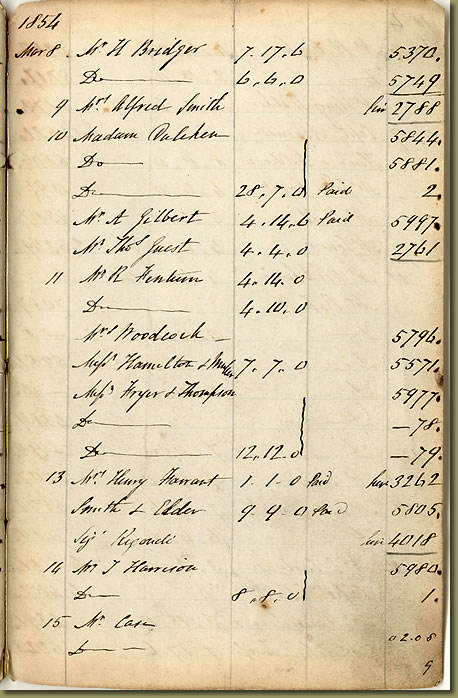 1854
Mar 8 Mr H Bridger 7.17.6 5370.
Do 6.6.0 5749
9 Mrs Alfred Smith hire 2788
10 Madam Dulcken 5844.
Do 5881.
Do 28.7.0 Paid 2.
Mr A Gilbert 4.14.6 Paid 5997.
Mr Thos Guest 4.4.0 2761
11 Mr R Fentum 4.14.0
Do 4.10.0
Mrs Woodcock 5796.
Messrs Hamilton & 7.7.0 5571.
Messrs Fryer & Thompson 5977
Do —78.
Do 12.12.0 —79.
13 Mrs Henry 1.1.0 Paid hire 3262
Smith & Elder 9.9.0 Paid 5805.
Sigr Regondi hire 4018
14 Mr J Harrison 5980.
Do 8.8.0 1.
15 Mr Case
Do
9